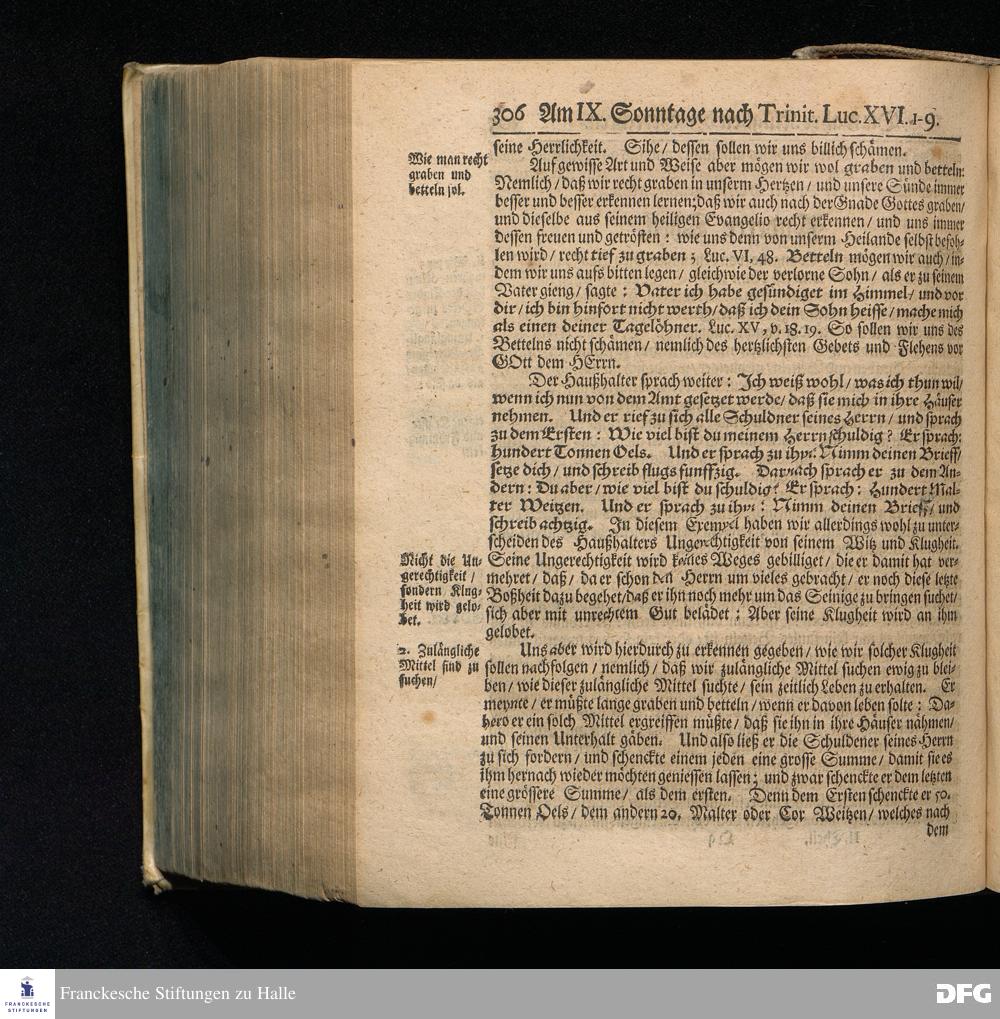 306 Am IX. Sonntage nach Trinit. Luc. XVI. 1-9.
seine Herrlichkeit. Sihe / dessen sollen wir uns billich schämen.
Wie man recht
graben und
betteln sol.
Auf gewisse Art und Weise aber mögen wir wol graben und betteln:
Nemlich / daß wir recht graben in unserm Hertzen / und unsere Sünde immer
besser und besser erkennen lernen; daß wir auch nach der Gnade Gottes graben /
und dieselbe aus seinem heiligen Evangelio recht erkennen / und uns immer
dessen freuen und getrösten : wie uns denn von unserm Heilande selbst befoh-
len wird / recht tief zu graben ; Luc. VI, 48. Betteln mögen wir auch / in-
dem wir uns aufs bitten legen / gleichwie der verlorne Sohn / als er zu seinem
Vater gieng / sagte : Vater ich habe gesündiget im Himmel / und vor
dir / ich bin hinfort nicht werth / daß ich dein Sohn heisse / mache mich
als einen deiner Tagelöhner. Luc. XV, v. 18. 19. So sollen wir uns des
Bettelns nicht schämen / nemlich des hertzlichsten Gebets und Flehens vor
GOtt dem HErrn.
Der Haußhalter sprach weiter : Ich weiß wohl / was ich thun wil /
wenn ich nun von dem Amt gesetzet werde / daß sie mich in ihre Häuser
nehmen. Und er rief zu sich alle Schuldner seines Herrn / und sprach
zu dem Ersten : Wie viel bist du meinem Herrn schuldig ? Er sprach:
hundert Tonnen Oels. Und er sprach zu ihm: Nimm deinen Brieff /
setze dich / und schreib flugs funffzig. Darnach sprach er zu dem An-
dern : Du aber / wie viel bist du schuldig? Er sprach : Hundert Mal-
ter Weitzen. Und er sprach zu ihm : Nimm deinen Brieff / und
schreib achtzig. In diesem Exempel haben wir allerdings wohl zu unter-
scheiden des Haußhalters Ungerechtigkeit von seinem Witz und Klugheit.
Nicht die Un-
gerechtigkeit /
sondern Klug-
heit wird gelo-
bet.
Seine Ungerechtigkeit wird keines Weges gebilliget / die er damit hat ver-
mehret / daß / da er schon den Herrn um vieles gebracht / er noch diese letzte
Boßheit dazu begehet / daß er ihn noch mehr um das Seinige zu bringen suchet /
sich aber mit unrechtem Gut belädet : Aber seine Klugheit wird an ihm
gelobet.
2. Zulängliche
Mittel sind zu
suchen /
Uns aber wird hierdurch zu erkennen gegeben / wie wir solcher Klugheit
sollen nachfolgen / nemlich / daß wir zulängliche Mittel suchen ewig zu blei-
ben / wie dieser zulängliche Mittel suchte / sein zeitlich Leben zu erhalten. Er
meynte / er müßte lange graben und betteln / wenn er davon leben solte : Da-
hero er ein solch Mittel ergreiffen müßte / daß sie ihn in ihre Häuser nähmen /
und seinen Unterhalt gäben. Und also ließ er die Schuldener seines Herrn
zu sich fordern / und schenckte einem jeden eine grosse Summe / damit sie es
ihm hernach wieder möchten geniessen lassen ; und zwar schenckte er dem letzten
eine grössere Summe / als dem ersten. Denn dem Ersten schenckte er 50.
Tonnen Oels / dem andern 20. Malter oder Cor Weitzen / welches nach
dem
FRANCKESCHE
STIFTUNGEN
Franckesche Stiftungen zu Halle
DFG